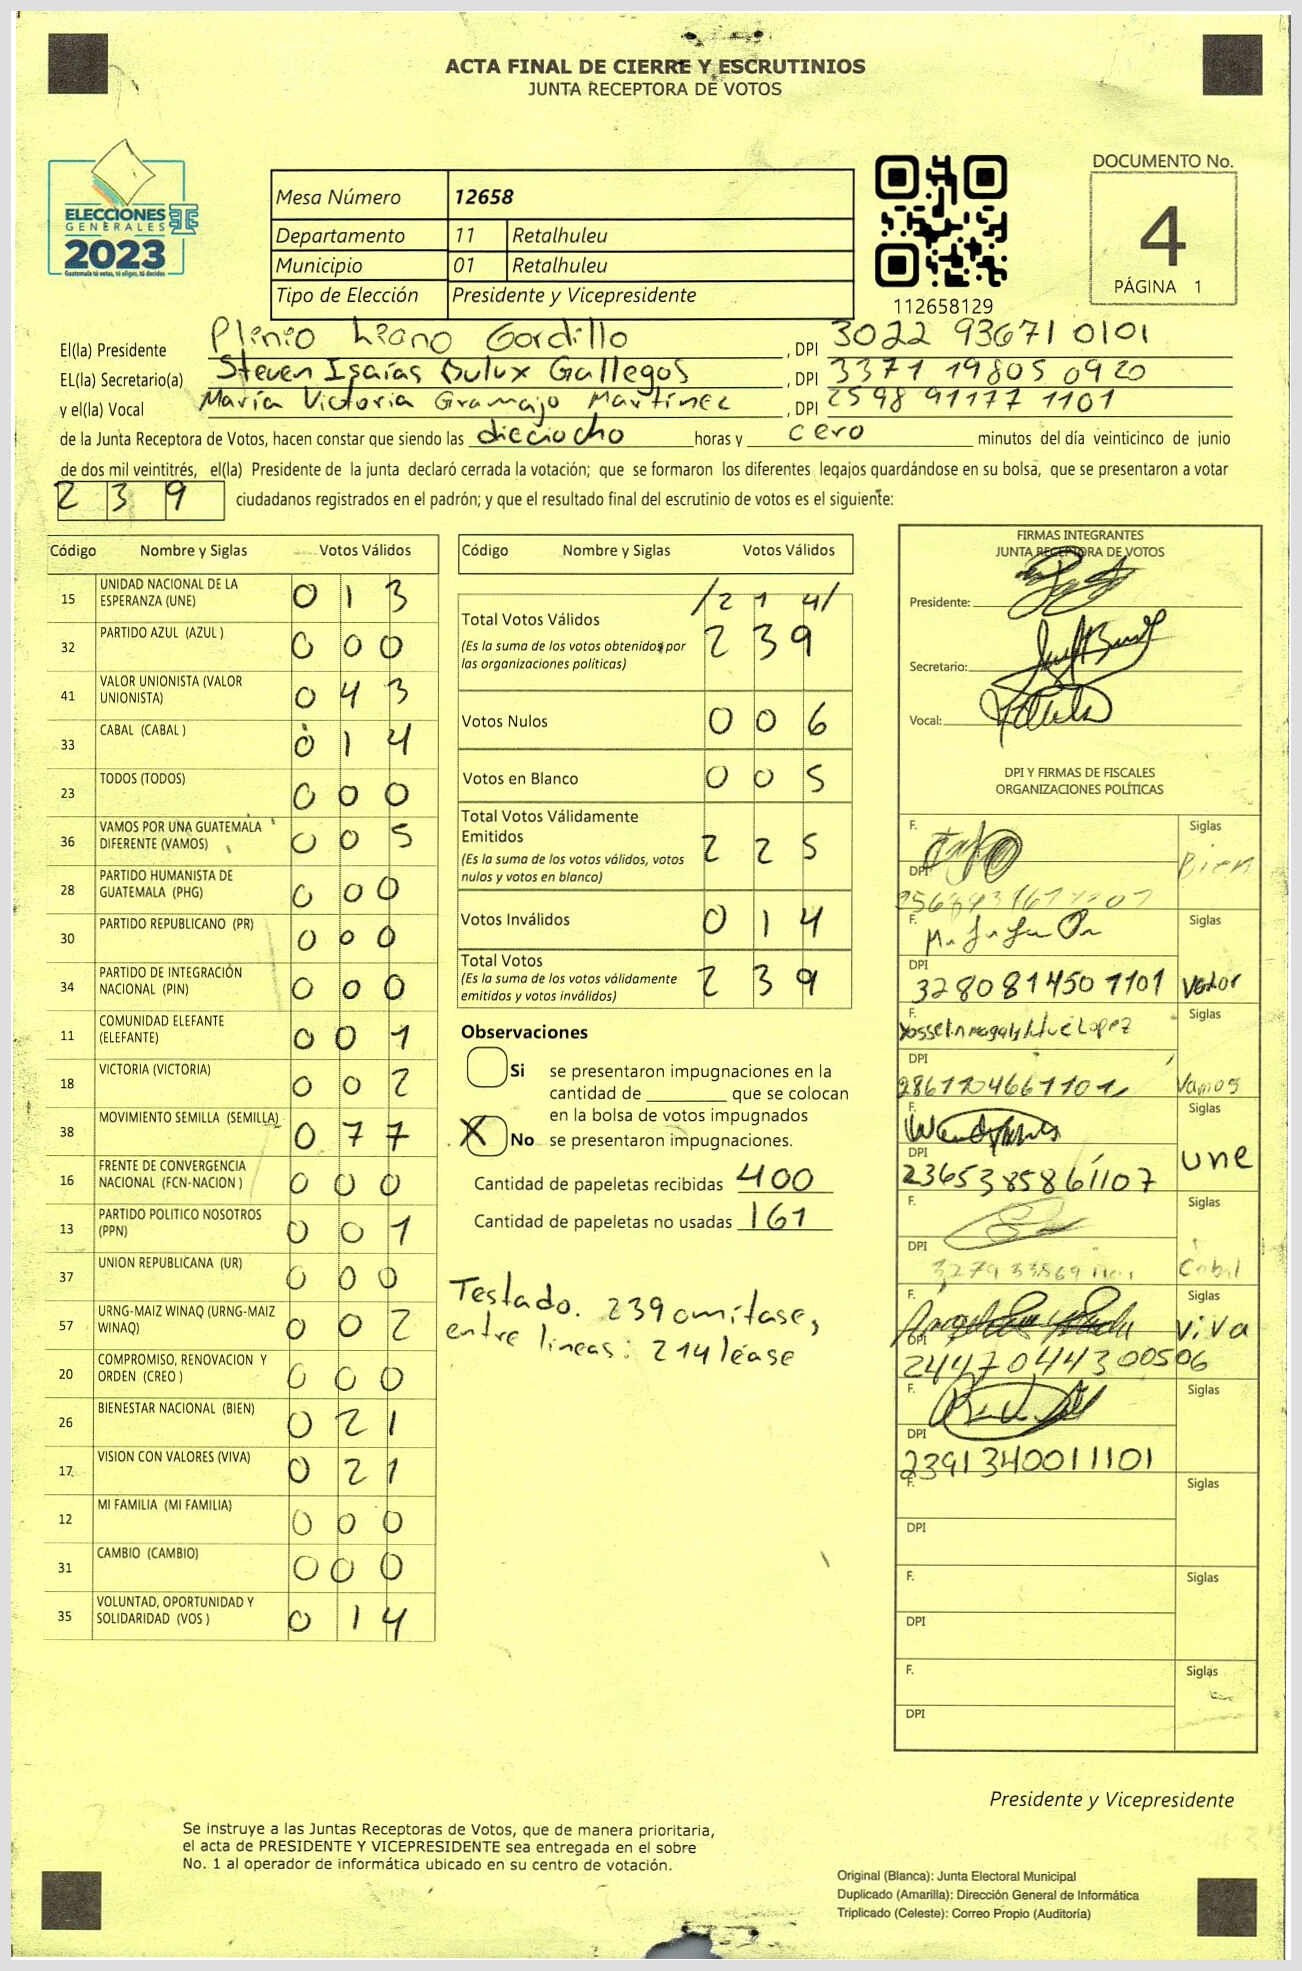 ACTA FINAL DE CIERRE Y ESCRUTINIOS
JUNTA RECEPTORA DE VOTOS
ELECCIONES
GENERALES
2023
Guatemala tú votas, tú eliges, tú decides
Mesa Número 12658
Departamento 11 Retalhuleu
Municipio 01 Retalhuleu
Tipo de Elección Presidente y Vicepresidente
112658129
DOCUMENTO No.
4
PÁGINA 1
El(la) Presidente Plinio Liano Gordillo, DPI 3022 93671 0101
EL(la) Secretario(a) Steven Isaías Bulux Gallegos, DPI 3371 19805 0920
y el(la) Vocal María Victoria Gramajo Martínez, DPI 2598 91177 1101
de la Junta Receptora de Votos, hacen constar que siendo las dieciocho horas y cero minutos del día veinticinco de junio
de dos mil veintitrés, el(la) Presidente de la junta declaró cerrada la votación; que se formaron los diferentes legajos guardándose en su bolsa, que se presentaron a votar
2 3 9 ciudadanos registrados en el padrón; y que el resultado final del escrutinio de votos es el siguiente:
Código Nombre y Siglas Votos Válidos
15 UNIDAD NACIONAL DE LA
ESPERANZA (UNE) 0 1 3
32 PARTIDO AZUL (AZUL ) 0 0 0
41 VALOR UNIONISTA (VALOR
UNIONISTA) 0 4 3
33 CABAL (CABAL ) 0 1 4
23 TODOS (TODOS) 0 0 0
36 VAMOS POR UNA GUATEMALA
DIFERENTE (VAMOS) 0 0 5
28 PARTIDO HUMANISTA DE
GUATEMALA (PHG) 0 0 0
30 PARTIDO REPUBLICANO (PR) 0 0 0
34 PARTIDO DE INTEGRACIÓN
NACIONAL (PIN) 0 0 0
11 COMUNIDAD ELEFANTE
(ELEFANTE) 0 0 1
18 VICTORIA (VICTORIA) 0 0 2
38 MOVIMIENTO SEMILLA (SEMILLA) 0 7 7
16 FRENTE DE CONVERGENCIA
NACIONAL (FCN-NACION ) 0 0 0
13 PARTIDO POLITICO NOSOTROS
(PPN) 0 0 1
37 UNION REPUBLICANA (UR) 0 0 0
57 URNG-MAIZ WINAQ (URNG-MAIZ
WINAQ) 0 0 2
20 COMPROMISO, RENOVACION Y
ORDEN (CREO ) 0 0 0
26 BIENESTAR NACIONAL (BIEN) 0 2 1
17 VISION CON VALORES (VIVA) 0 2 1
12 MI FAMILIA (MI FAMILIA) 0 0 0
31 CAMBIO (CAMBIO) 0 0 0
35 VOLUNTAD, OPORTUNIDAD Y
SOLIDARIDAD (VOS ) 0 1 4
Código Nombre y Siglas Votos Válidos
/2 1 4/
Total Votos Válidos
(Es la suma de los votos obtenidos por
las organizaciones políticas) 2 3 9
Votos Nulos 0 0 6
Votos en Blanco 0 0 5
Total Votos Válidamente
Emitidos
(Es la suma de los votos válidos, votos
nulos y votos en blanco) 2 2 5
Votos Inválidos 0 1 4
Total Votos
(Es la suma de los votos válidamente
emitidos y votos inválidos) 2 3 9
Observaciones
Si se presentaron impugnaciones en la
cantidad de ________ que se colocan
en la bolsa de votos impugnados
X No se presentaron impugnaciones.
Cantidad de papeletas recibidas 400
Cantidad de papeletas no usadas 161
Testado. 239 omitase,
entre lineas: 214 léase
FIRMAS INTEGRANTES
JUNTA RECEPTORA DE VOTOS
Presidente:
Secretario:
Vocal:
DPI Y FIRMAS DE FISCALES
ORGANIZACIONES POLÍTICAS
F. Siglas
DPI Bien
F. Siglas
DPI
3280814507101 Valor
F. Siglas
DPI
2861204661101 Vamos
F. Siglas
DPI
2365385861107 une
F. Siglas
DPI Cabal
F. Siglas
DPI viva
2447044300506
F. Siglas
DPI
2391340011101
F. Siglas
DPI
F. Siglas
DPI
F. Siglas
DPI
Presidente y Vicepresidente
Se instruye a las Juntas Receptoras de Votos, que de manera prioritaria,
el acta de PRESIDENTE Y VICEPRESIDENTE sea entregada en el sobre
No. 1 al operador de informática ubicado en su centro de votación.
Original (Blanca): Junta Electoral Municipal
Duplicado (Amarilla): Dirección General de Informática
Triplicado (Celeste): Correo Propio (Auditoría)